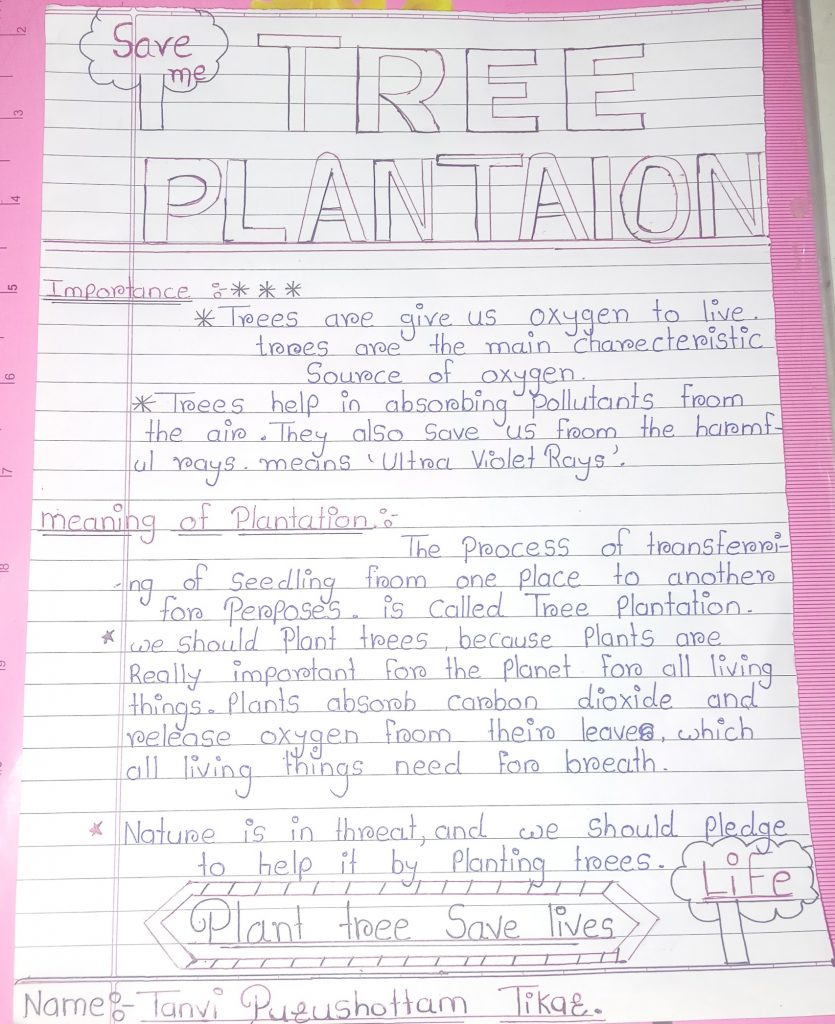 Save
me
TREE
PLANTAION
Importance :- * * *
* Trees are give us oxygen to live.
trees are the main charecteristic
Source of oxygen.
* Trees help in absorbing pollutants from
the air. They also save us from the harmf-
ul rays. means 'Ultra Violet Rays'.
meaning of Plantation :-
The Process of transferri-
-ng of seedling from one place to another
for Perposes. is called Tree Plantation.
* we should Plant trees, because plants are
Really important for the planet for all living
things. Plants absorb carbon dioxide and
release oxygen from their leaves, which
all living things need for breath.
* Nature is in threat, and we should pledge
to help it by planting trees.
Life
Plant tree Save lives
Name :- Tanvi Purushottam Tikar.
2
3
4
5
6
7
8
9